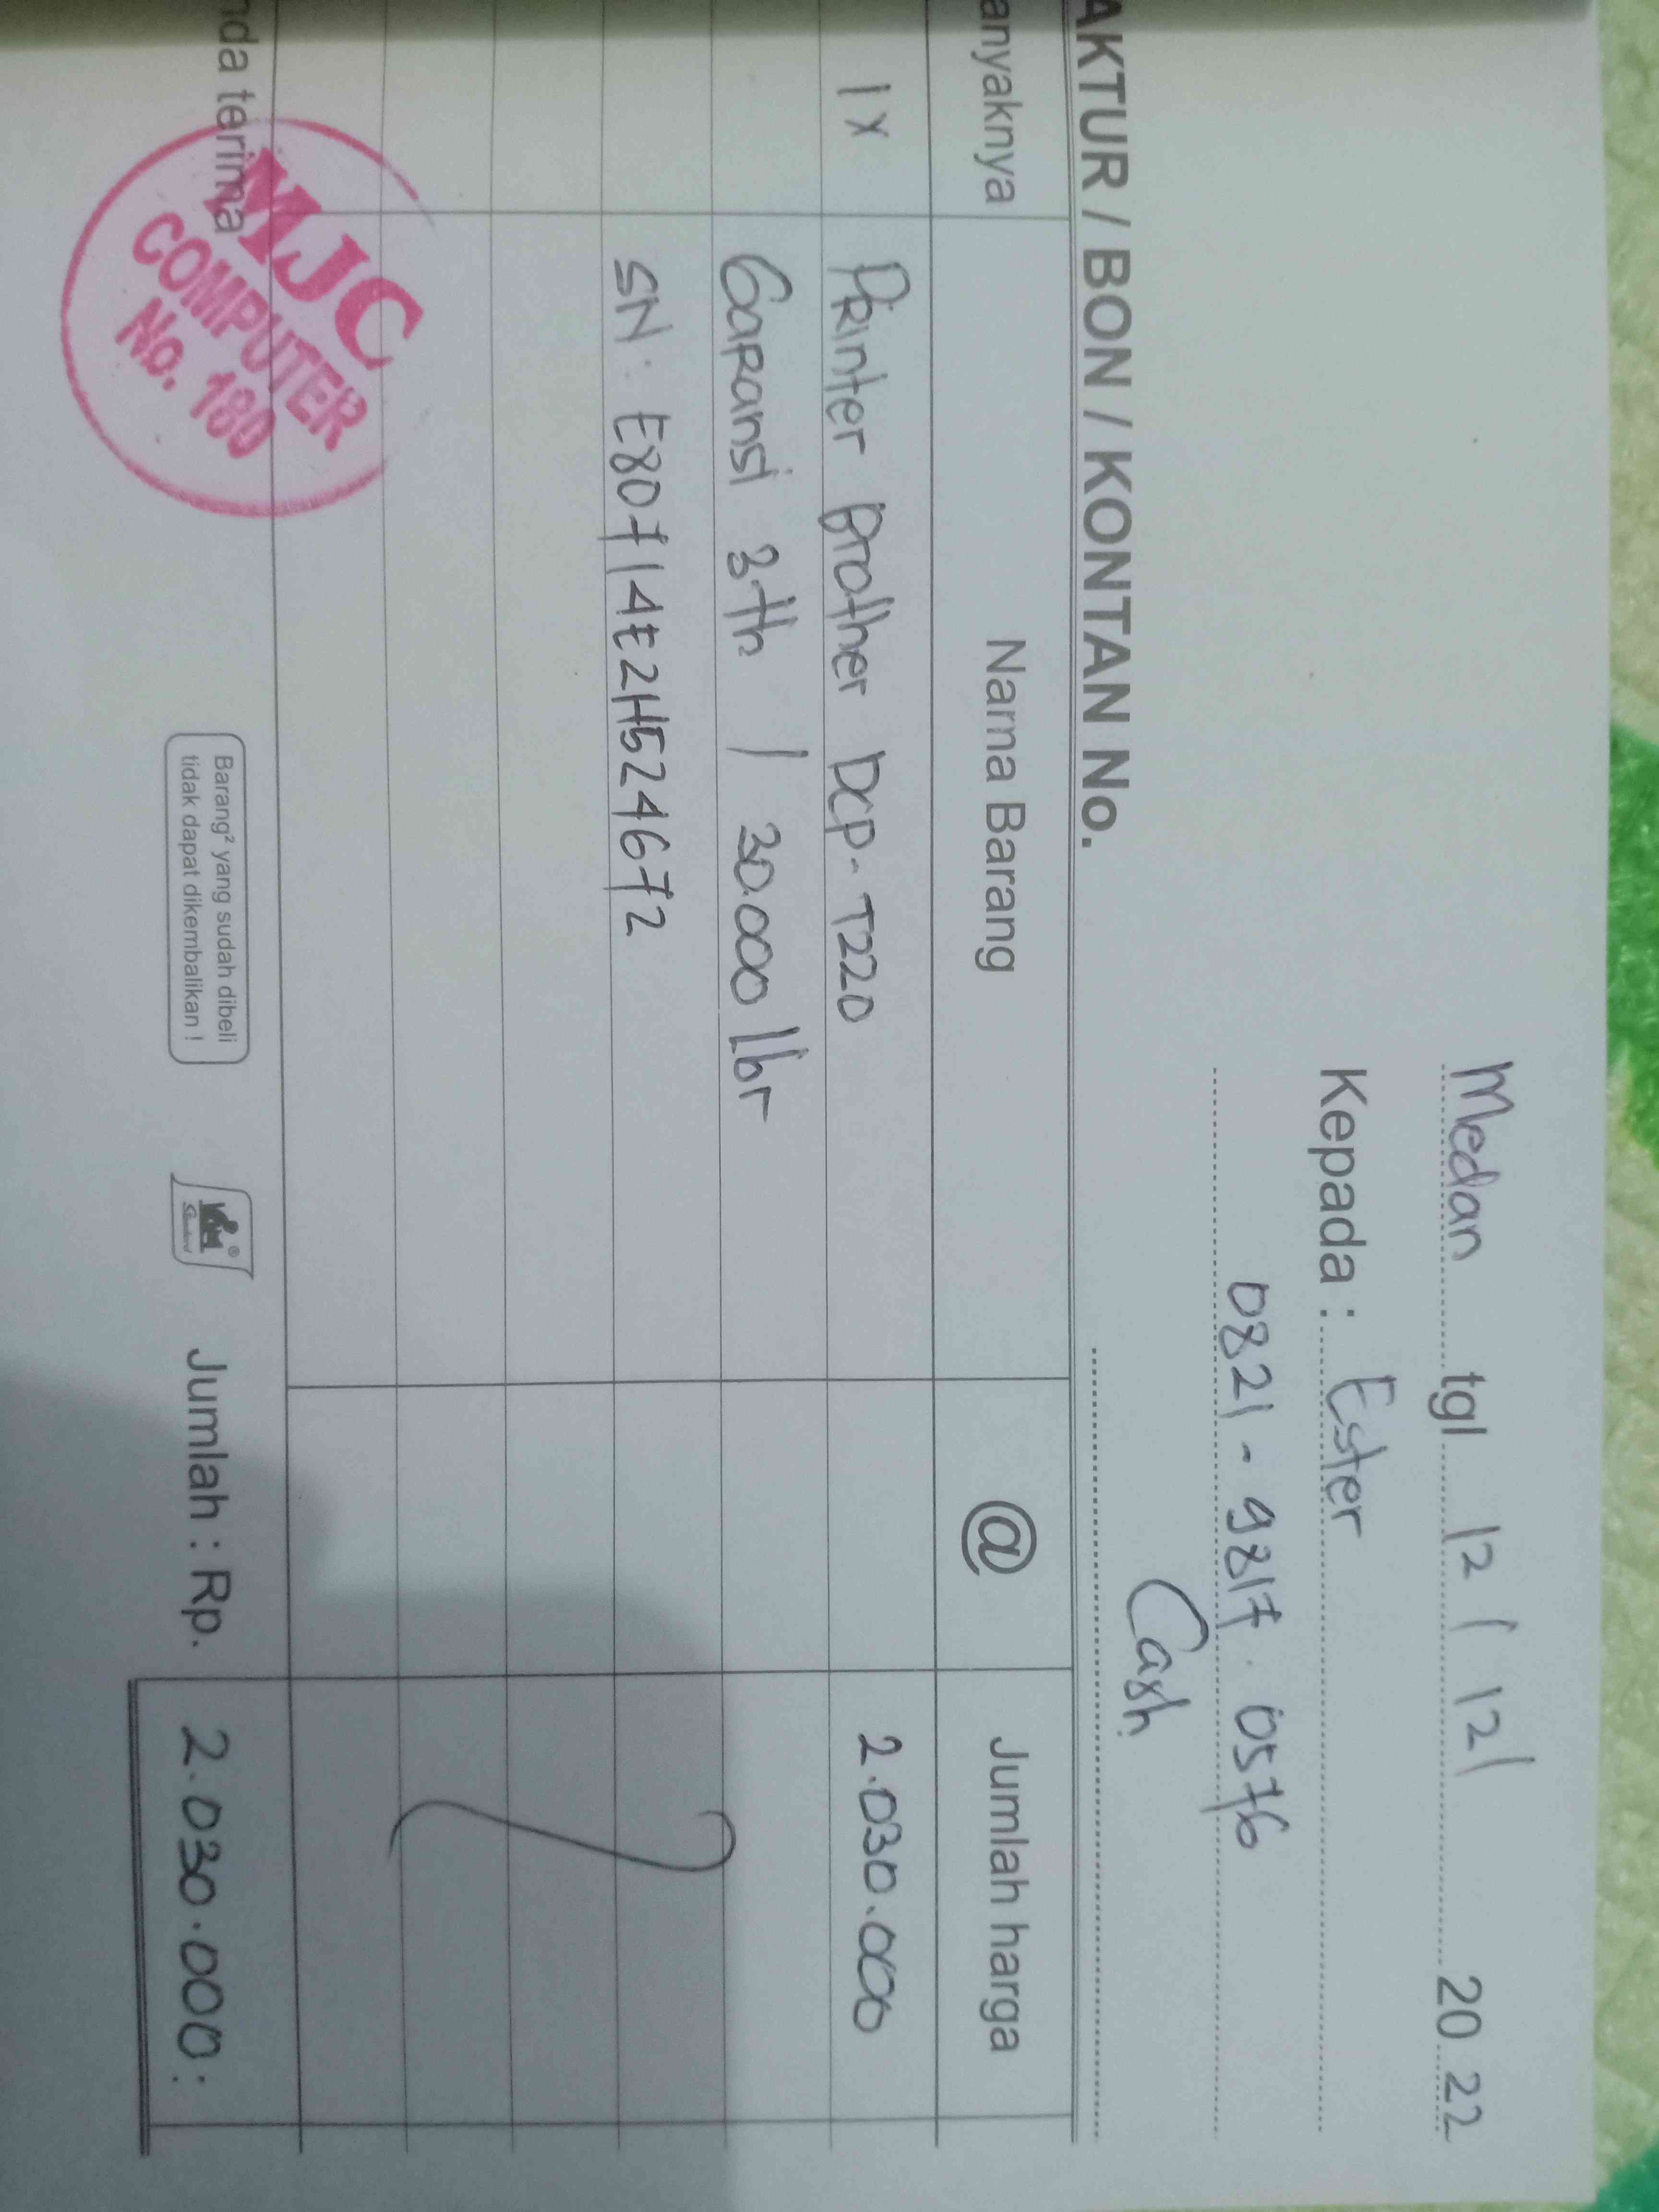 Medan tgl 12 / 12 / 20 22
Kepada : Ester
0821 - 9817 . 0576
Cash
AKTUR / BON / KONTAN No.
anyaknya Nama Barang @ Jumlah harga
1 x Printer Brother DCP-T220 2.030.000
Garansi 3 th / 30.000 lbr
SN : E80714E2H524672
nda terima
MJC
COMPUTER
No. 180
Barang² yang sudah dibeli
tidak dapat dikembalikan !
Standard
Jumlah : Rp. 2.030.000 :